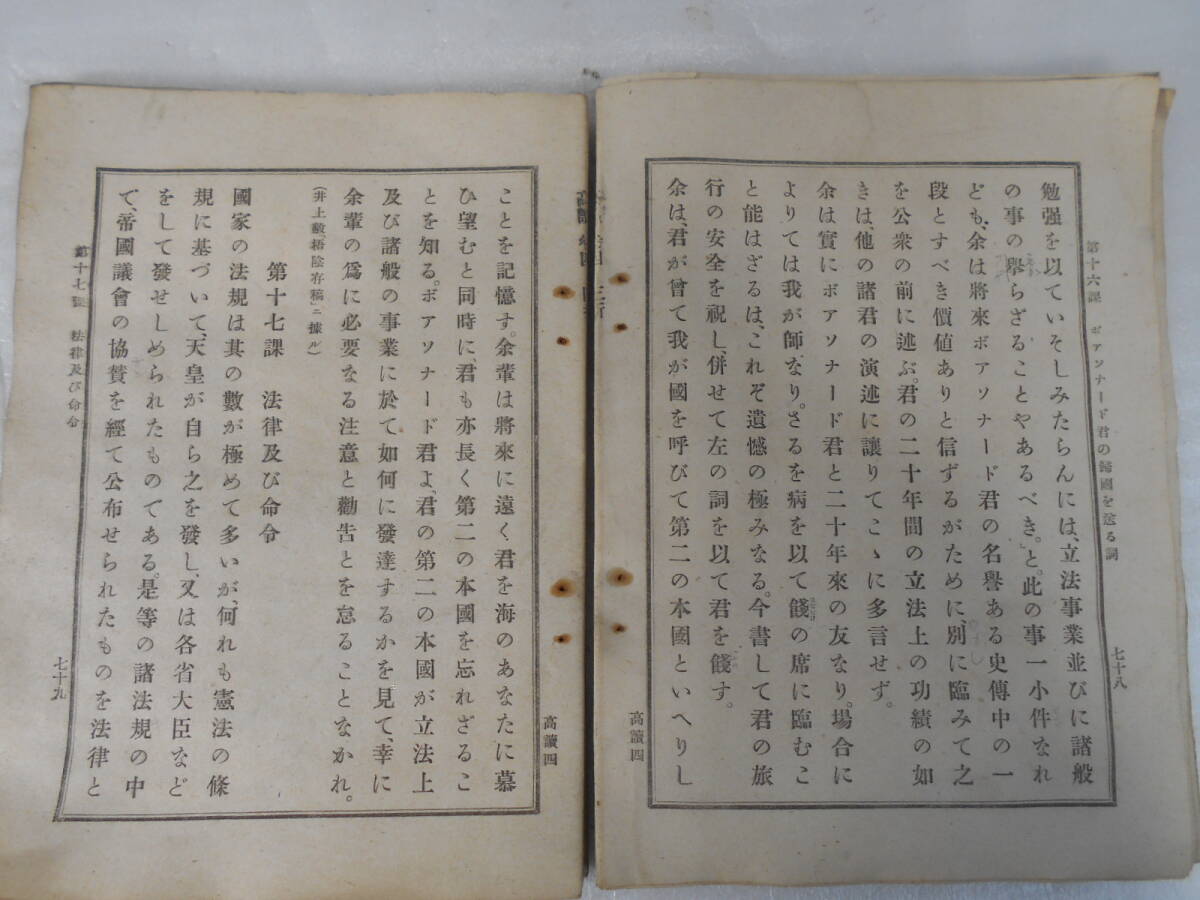 第十六課 ボアソナード君の歸國を送る詞
七十八
勉强を以ていそしみたらんには、立法事業並びに諸般
の事の擧らざることやあるべき。と。此の事一小件なれ
ども、余は將來ボアソナード君の名譽ある史傳中の一
段とすべき價値ありと信ずるがために、別に臨みて之
を公衆の前に述ぶ。君の二十年間の立法上の功績の如
きは、他の諸君の演述に讓りてこゝに多言せず。
余は實にボアソナード君と二十年來の友なり。場合に
よりては我が師なり。さるを病を以て餞の席に臨むこ
と能はざるは、これぞ遺憾の極みなる。今書して君の旅
行の安全を祝し、併せて左の詞を以て君を餞す。
余は、君が曾て我が國を呼びて第二の本國といへりし
高讀四
ことを記憶す。余輩は將來に遠く君を海のあなたに慕
ひ望むと同時に、君も亦長く第二の本國を忘れざるこ
とを知る。ボアソナード君よ、君の第二の本國が立法上
及び諸般の事業に於て如何に發達するかを見て、幸に
余輩の爲に必要なる注意と勸告とを忘ることなかれ。
(井上毅、「梧陰存稿」ニ據ル)
第十七課 法律及び命令
國家の法規は其の數が極めて多いが、何れも憲法の條
規に基づいて、天皇が自ら之を發し、又は各省大臣など
をして發せしめられたものである。是等の諸法規の中
で、帝國議會の協賛を經て公布せられたものを法律と
第十七課 法律及び命令
七十九
高讀四